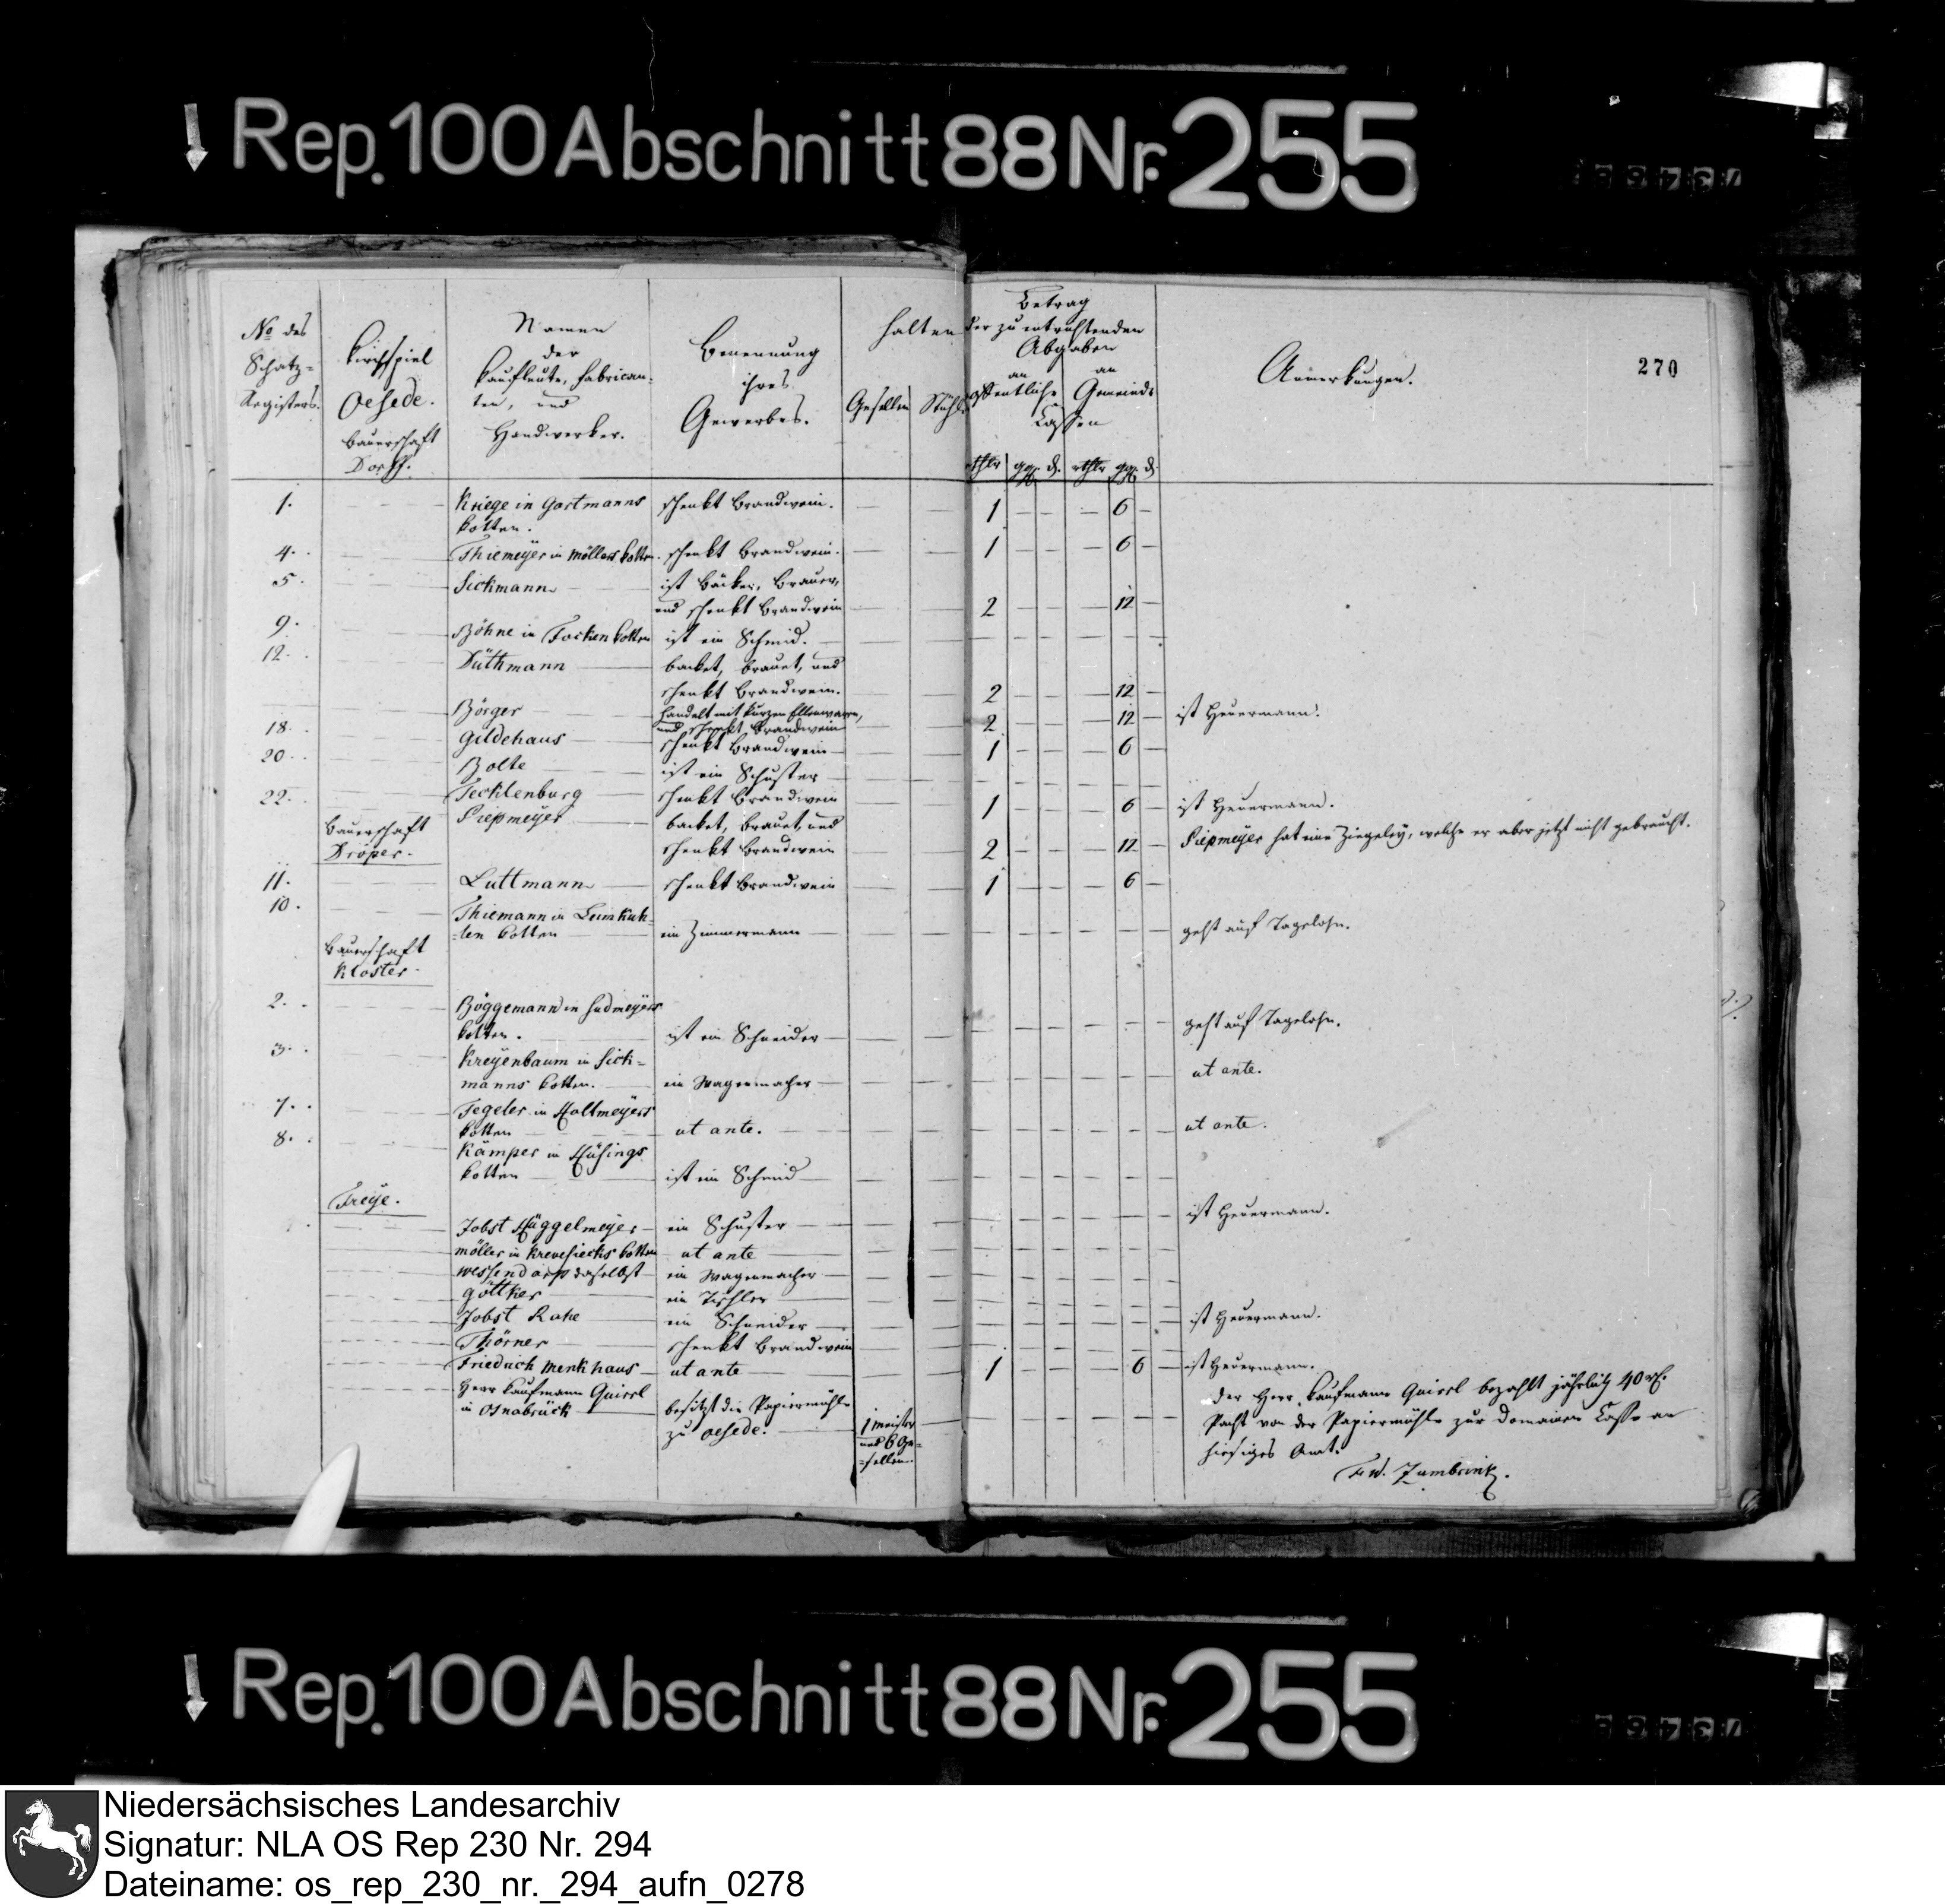 Rep. 100 Abschnitt 88 Nr. 255
270
No des Schatz= Registers.
Kirchspiel Oesede. Bauerschaft Dorff.
Namen der Kaufleute, Fabrican- ten, und Handwerker.
Benennung ihres Gewerbes.
halten
Gesellen Stühle
Betrag der zu entrichtenden Abgaben
an öffentliche an Gemeinde Cassen
rthlr ggr. d. rthlr ggr. d.
Anmerkungen.
1. Kriege in Gartmanns Kotten. schenkt Brandwein. 1 6
4. Thiemeyer in Möllers Kotten. schenkt Brandwein. 1 6
5. Sickmann ist Bäcker, Brauer,
und schenkt Brandwein 2 12
9. Böhne in Focken Kotten ist ein Schmid.
12. Düthmann backet, brauet, und
schenkt Brandwein. 2 12
Börger handelt mit kurzen Ellenwaren,
und schenkt Brandwein 2 12 ist Heuermann.
18. Gildehaus schenkt Brandwein 1 6
20. Bolte ist ein Schuster
Tecklenburg schenkt Brandwein 1 6 ist Heuermann.
22. Piepmeyer backet, brauet, und
schenkt Brandwein 2 12 Piepmeyer hat eine Ziegeley, welche er aber jetzt nicht gebraucht.
Bauerschaft
Dröper.
11. Luttmann schenkt Brandwein 1 6
10. Thiemann in Leimkuh-
-len Kotten ein Zimmermann geht auf Tagelohn.
Bauerschaft
Kloster.
2. Böggemann in Sudmeyers
Kotten. ist ein Schneider geht auf Tagelohn.
3. Kreyenbaum in Sick=
manns Kotten. ein Wagenmacher ut ante.
7. Tegeler in Holtmeyers
Kotten ut ante. ut ante.
8. Kämper in Hüsings
Kotten ist ein Schmid
Freye.
Jobst Hüggelmeyer ein Schuster ist Heuermann.
Möller in Krevesiecks Kotten ut ante
Wessendarp daselbst ein Wagenmacher
Göttker ein Tischler
Jobst Rahe ein Schneider ist Heuermann.
Thörner schenkt Brandwein
Friedrich Menkhaus ut ante 1 6 ist Heuermann.
Herr Kaufmann Quirl
in Osnabrück besitzt die Papiermühle
zu Oesede. 1 Meister
und 6 Ge=
=sellen.
der Herr Kaufmann Quirl bezahlt jährlich 40 rt.
Pacht von der Papiermühle zur Domainen Casse an
hiesiges Amt.
Fr. W. Zumbrink.
Rep. 100 Abschnitt 88 Nr. 255
Niedersächsisches Landesarchiv
Signatur: NLA OS Rep 230 Nr. 294
Dateiname: os_rep_230_nr._294_aufn_0278